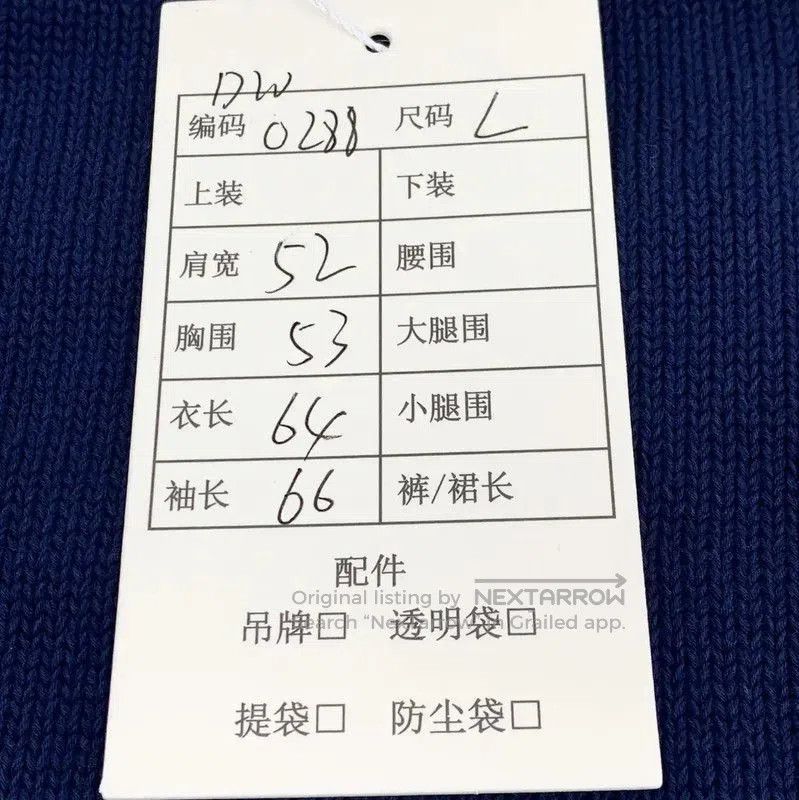 DW
编码 0288 尺码 L
上装 下装
肩宽 52 腰围
胸围 53 大腿围
衣长 64 小腿围
袖长 66 裤/裙长
配件
Original listing by NEXTARROW
吊牌□ 透明袋□
Search “Nextarrow” in Grailed app.
提袋□ 防尘袋□